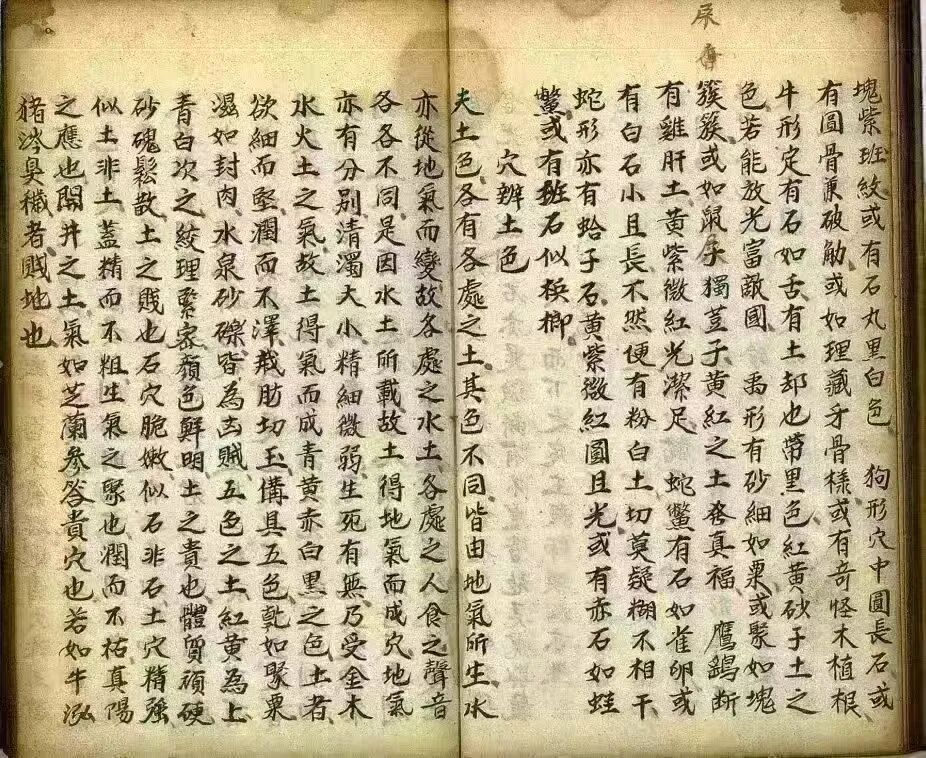 塊紫班紋或有石丸黑白色 狗形穴中圓長石或
有圓骨兼破觔或如理藏牙骨樣或有奇怪木植根
牛形定有石如舌有土却也帶黑色紅黃砂子土之
色若能放光富敵國 禹形有砂細如栗或聚如塊
簇簇或如鼠子獨荳子黃紅之土發真福 鷹鷄断
有雞肝土黃紫微紅光潔足 蛇鱉有石如雀卵或
有白石小且長不然便有粉白土切莫疑糊不相干
蛇形亦有蛤子石黃紫微紅圓且光或有赤石如蛙
鱉或有班石似梹榔
穴辨土色
夫土色各有各處之土其色不同皆由地氣所生水
亦從地氣而變故各處之水土各處之人食之聲音
各各不同是因水土之所載故土得地氣而成穴地氣
亦有分别清濁大小精細微弱生死有無乃受金木
水火土之氣故土得氣而成青黃赤白黑之色土者
欲細而堅潤而不澤裁肪切玉備具五色乾如聚粟
濕如封肉水泉砂礫皆為凶賊五色之土紅黃為上
青白次之紋理緊密顏色鮮明土之貴也體質頑硬
砂磈鬆散土之賤也石穴脆嫩似石非石土穴精強
似土非土蓋精而不粗生氣之聚也潤而不枯真陽
之應也開井之土氣如芝蘭參荅貴穴也若如牛泓
猪涔臭穢者賤地也